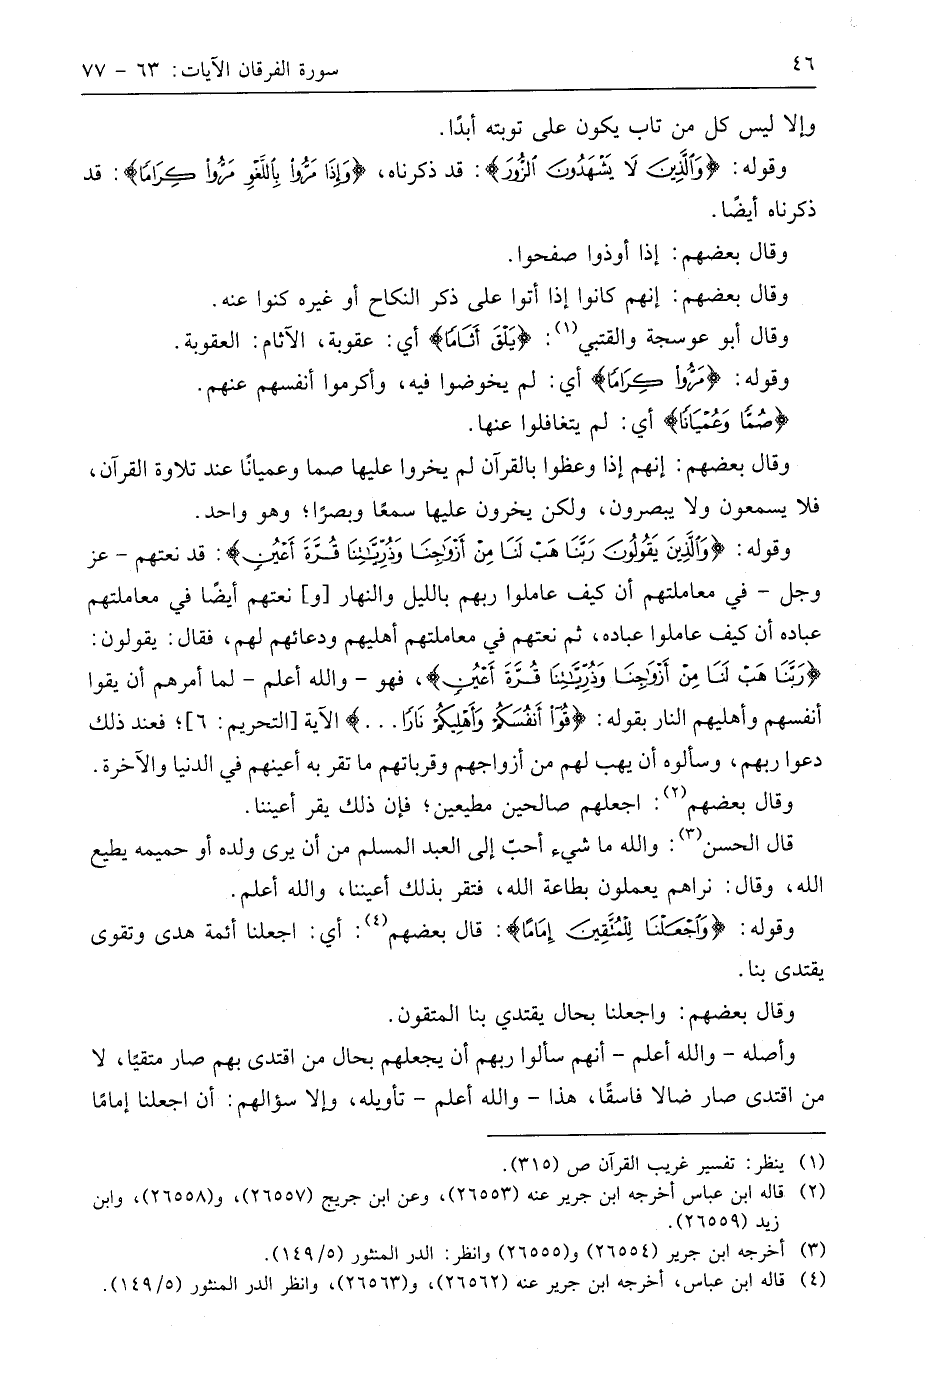 ٤٦ سورة الفرقان الآيات: ٦٣ - ٧٧
وإلا ليس كل من تاب يكون على توبته أبدًا.
وقوله: ﴿وَٱلَّذِينَ لَا يَشْهَدُونَ ٱلزُّورَ﴾: قد ذكرناه، ﴿وَإِذَا مَرُّوا۟ بِٱللَّغْوِ مَرُّوا۟ كِرَامًا﴾: قد
ذكرناه أيضًا.
وقال بعضهم: إذا أوذوا صفحوا.
وقال بعضهم: إنهم كانوا إذا أتوا على ذكر النكاح أو غيره كنوا عنه.
وقال أبو عوسجة والقتبي(١): ﴿يَلْقَ أَثَامًا﴾ أي: عقوبة، الآثام: العقوبة.
وقوله: ﴿مَرُّوا۟ كِرَامًا﴾ أي: لم يخوضوا فيه، وأكرموا أنفسهم عنهم.
﴿صُمًّا وَعُمْيَانًا﴾ أي: لم يتغافلوا عنها.
وقال بعضهم: إنهم إذا وعظوا بالقرآن لم يخروا عليها صما وعميانًا عند تلاوة القرآن،
فلا يسمعون ولا يبصرون، ولكن يخرون عليها سمعًا وبصرًا؛ وهو واحد.
وقوله: ﴿وَٱلَّذِينَ يَقُولُونَ رَبَّنَا هَبْ لَنَا مِنْ أَزْوَٰجِنَا وَذُرِّيَّـٰتِنَا قُرَّةَ أَعْيُنٍ﴾: قد نعتهم - عز
وجل - في معاملتهم أن كيف عاملوا ربهم بالليل والنهار [و] نعتهم أيضًا في معاملتهم
عباده أن كيف عاملوا عباده، ثم نعتهم في معاملتهم أهليهم ودعائهم لهم، فقال: يقولون:
﴿رَبَّنَا هَبْ لَنَا مِنْ أَزْوَٰجِنَا وَذُرِّيَّـٰتِنَا قُرَّةَ أَعْيُنٍ﴾، فهو - والله أعلم - لما أمرهم أن يقوا
أنفسهم وأهليهم النار بقوله: ﴿قُوٓا۟ أَنفُسَكُمْ وَأَهْلِيكُمْ نَارًا...﴾ الآية [التحريم: ٦]؛ فعند ذلك
دعوا ربهم، وسألوه أن يهب لهم من أزواجهم وقرباتهم ما تقر به أعينهم في الدنيا والآخرة.
وقال بعضهم(٢): اجعلهم صالحين مطيعين؛ فإن ذلك يقر أعيننا.
قال الحسن(٣): والله ما شيء أحبّ إلى العبد المسلم من أن يرى ولده أو حميمه يطيع
الله، وقال: نراهم يعملون بطاعة الله، فتقر بذلك أعيننا، والله أعلم.
وقوله: ﴿وَٱجْعَلْنَا لِلْمُتَّقِينَ إِمَامًا﴾: قال بعضهم(٤): أي: اجعلنا أئمة هدى وتقوى
يقتدى بنا.
وقال بعضهم: واجعلنا بحال يقتدي بنا المتقون.
وأصله - والله أعلم - أنهم سألوا ربهم أن يجعلهم بحال من اقتدى بهم صار متقيًا، لا
من اقتدى صار ضالا فاسقًا، هذا - والله أعلم - تأويله، وإلا سؤالهم: أن اجعلنا إمامًا
(١) ينظر: تفسير غريب القرآن ص (٣١٥).
(٢) قاله ابن عباس أخرجه ابن جرير عنه (٢٦٥٥٣)، وعن ابن جريج (٢٦٥٥٧)، و(٢٦٥٥٨)، وابن
زيد (٢٦٥٥٩).
(٣) أخرجه ابن جرير (٢٦٥٥٤) و(٢٦٥٥٥) وانظر: الدر المنثور (٥/ ١٤٩).
(٤) قاله ابن عباس، أخرجه ابن جرير عنه (٢٦٥٦٢)، و(٢٦٥٦٣)، وانظر الدر المنثور (٥/ ١٤٩).